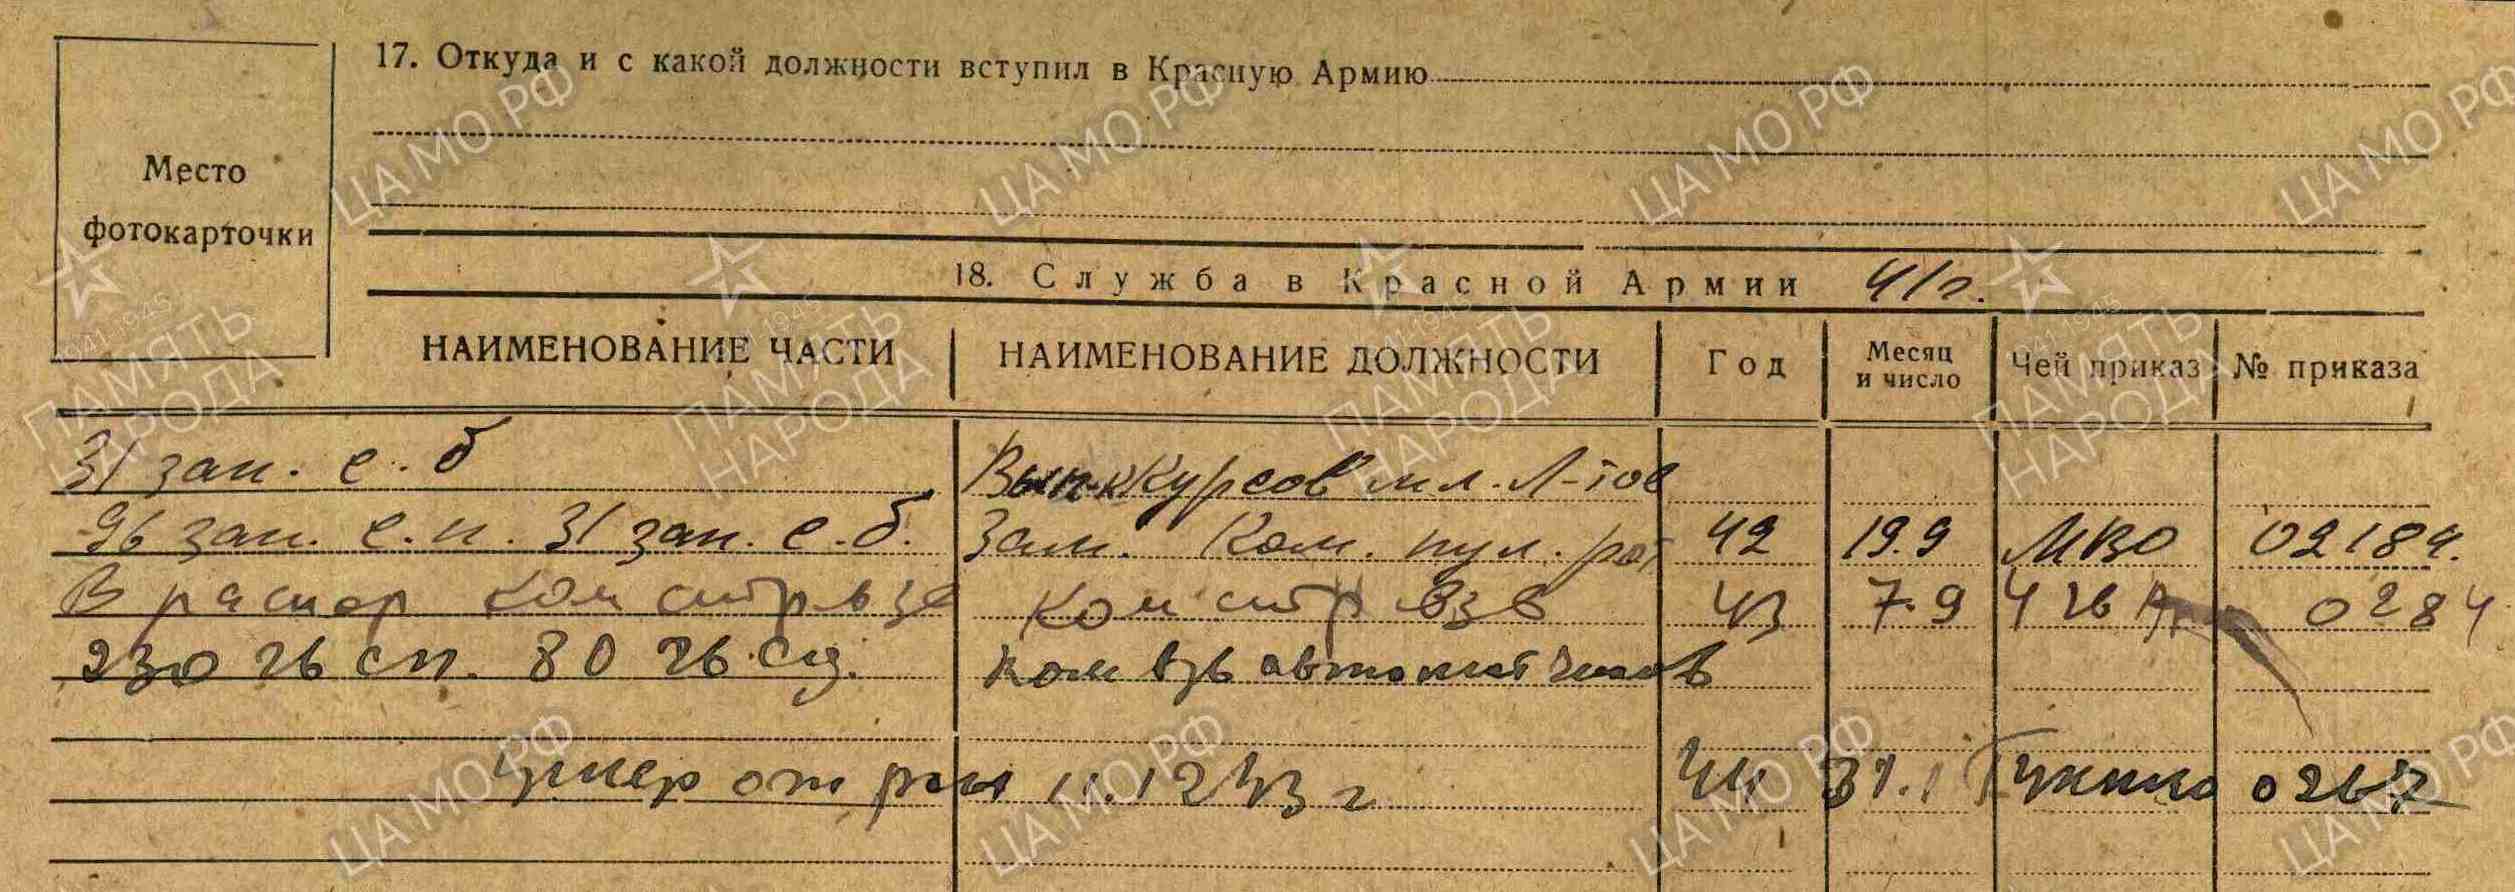 17. Откуда и с какой должности вступил в Красную Армию
Место
фотокарточки
18. Служба в Красной Армии 41г.
НАИМЕНОВАНИЕ ЧАСТИ НАИМЕНОВАНИЕ ДОЛЖНОСТИ Год Месяц и число Чей приказ № приказа
31 зап. с. б Вып-к Курсов мл. Л-тов
96 зап. с.п. 31 зап. с.б. Зам. Ком. пул. рот 42 19.9 МВО 02184.
В распор ком стр взв ком стр взв 43 7.9 4 гв А 0284
230 гв сп. 80 гв. сд. ком взв автоматчиков
умер от ран 11.12 43 г 44 31.1 0267
ЦА МО РФ
ПАМЯТЬ НАРОДА
1941-1945